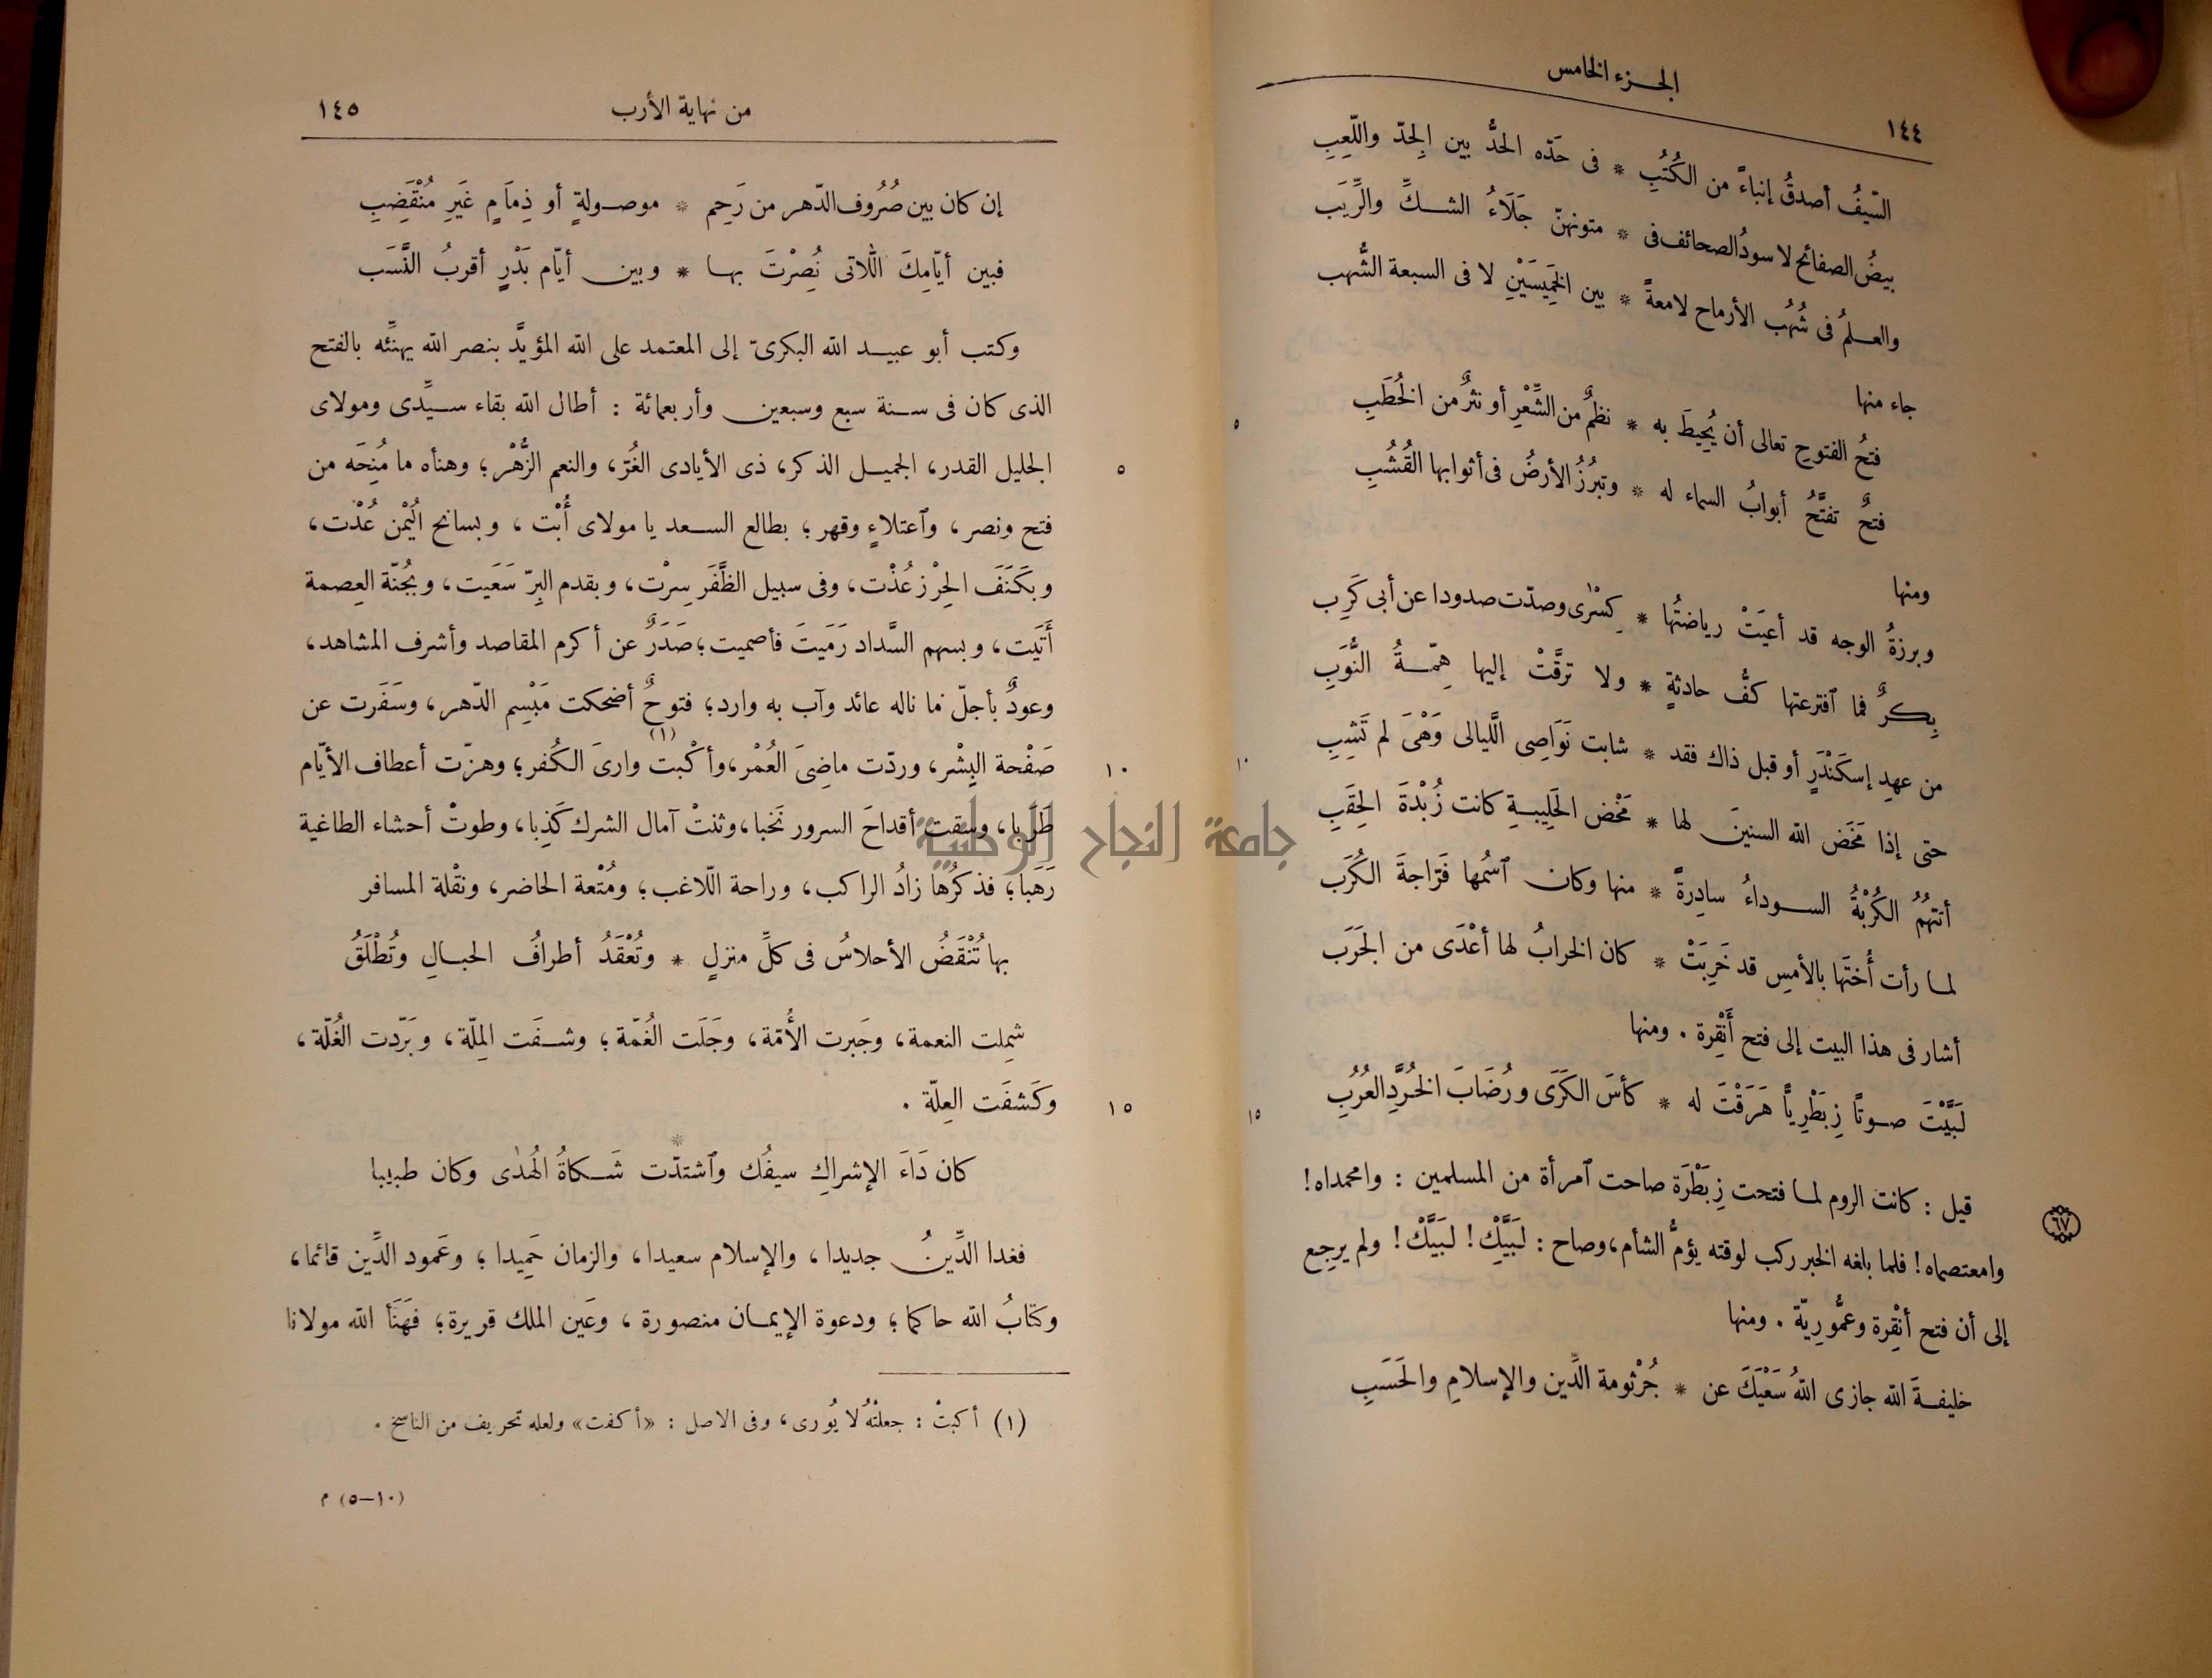 الجزء الخامس
١٤٤
السّيفُ أصدقُ إنباءً من الكُتُبِ * فى حَدّه الحدُّ بين الجِدّ واللّعِبِ
بيضُ الصفائح لا سودُ الصحائف فى * متونهنّ جَلَاءُ الشكِّ والرِّيَب
والعلمُ فى شُهُب الأرماح لامعةً * بين الخَمِيسَيْنِ لا فى السبعة الشُّهب
جاء منها
فتحُ الفتوحِ تعالى أن يُحِيطَ به * نظمٌ من الشِّعْرِ أو نثرٌ من الخُطَبِ
٥
فتحٌ تفتَّحُ أبوابُ السماء له * وتبرُزُ الأرضُ فى أثوابها القُشُبِ
ومنها
وبرزةُ الوجه قد أعيَتْ رياضتُها * كِسْرٰى وصدّت صدودا عن أبى كَرِب
بِكرٌ فما ٱفترعتها كفُّ حادثةٍ * ولا ترقَّتْ إليها هِمّةُ النُّوَبِ
من عهدِ إسكَنْدَرٍ أو قبل ذاك فقد * شابت نَوَاصِى الَّليالى وَهْىَ لم تَشِبِ
١٠
حتى إذا مَخَض الله السنينَ لها * مَخْض الحَلِيبةِ كانت زُبْدَةَ الحِقَبِ
أتتهُمُ الكُرْبةُ السوداءُ سادِرةً * منها وكان ٱسمُها فَرّاجةَ الكُرَب
لما رأت أُختَها بالأمسِ قد خَرِبَتْ * كان الخرابُ لها أعْدَى من الجَرَب
أشار فى هذا البيت إلى فتح أَنْقِرة . ومنها
لَبَّيْتَ صوتًا زِبَطْرِيًّا هَرَقْتَ له * كأسَ الكَرَى ورُضَابَ الخُرَّدِ العُرُبِ
١٥
قيل : كانت الروم لما فتحت زِبَطْرَة صاحت ٱمرأة من المسلمين : وامحمداه!
٦٧
وامعتصماه! فلما بلغه الخبر ركب لوقته يؤمُّ الشأم، وصاح : لَبَيَّكِ! لَبَيَّكْ! ولم يرجِع
إلى أن فتح أنْقِرة وعمُّورِيّة . ومنها
خليفةَ الله جازى اللهُ سَعْيَكَ عن * جُرْثومة الدِّين والإسلامِ والحَسَبِ
من نهاية الأرب
١٤٥
إن كان بين صُرُوف الدّهر من رَحِم * موصولةٍ أو ذِمَامٍ غَيرِ مُنْقَضِبِ
فبين أيّامِكَ اللّاتى نُصِرْتَ بها * وبين أيّام بَدْرٍ أقربُ النَّسَب
وكتب أبو عبيد الله البكرىّ إلى المعتمد على الله المؤيَّد بنصر الله يهنِّئه بالفتح
الذى كان فى سنة سبع وسبعين وأربعمائة : أطال الله بقاء سيِّدى ومولاى
الجليل القدر، الجميل الذكر، ذى الأيادى الغُرّ، والنعم الزُّهْر؛ وهنأه ما مُنِحَه من
٥
فتح ونصر، وٱعتلاءٍ وقهر؛ بطالع السعد يا مولاى أُبْت، وبسانح اليُمْن عُدْت،
وبكَنَفَ الحِرْز عُذْت، وفى سبيل الظَّفَر سِرْت، وبقدم البِرّ سَعَيت، وبجُنّة العِصمة
أَتَيت، وبسهم السَّداد رَمَيتَ فأصميت؛ صَدَرٌ عن أكرم المقاصد وأشرف المشاهد،
وعودٌ بأجلّ ما ناله عائد وآب به وارد؛ فتوحٌ أضحكت مَبْسِم الدّهر، وسَفَرت عن
صَفْحة البِشْر، وردّت ماضِىَ العُمْر، وأكْبت(١) وارىَ الكُفر؛ وهزّت أعطاف الأيّام
١٠
طَرَبا، وسقت أقداحَ السرور نَخَبا، وثنتْ آمال الشرك كَذِبا، وطوتْ أحشاء الطاغية
رَهَبا؛ فذكرُها زادُ الراكب، وراحة اللّاغب؛ ومُتْعة الحاضر، ونقْلة المسافر
بها تُنْقَضُ الأحلاسُ فى كلِّ منزلٍ * وتُعْقَدُ أطرافُ الحبالِ وتُطْلَقُ
شمِلت النعمة، وجَبرت الأُمّة، وجَلَت الغُمّة؛ وشفَت المِلّة، وبَرّدت الغُلّة،
وكَشفَت العِلّة .
١٥
كان دَاءَ الإشراكِ سيفُك وٱشتدّت * شَكاةُ الهُدٰى وكان طبيبا
فغدا الدِّينُ جديدا، والإسلام سعيدا، والزمان حَمِيدا؛ وعَمود الدِّين قائما،
وكتابُ الله حاكما؛ ودعوة الإيمان منصورة، وعَين الملك قريرة؛ فهَنَأ الله مولانا
(١) أكبتْ : جعلتْهُ لا يُورى، وفى الاصل : «أكفت» ولعله تحريف من الناسخ .
(١٠-٥) م
جامعة النجاح الوطنية